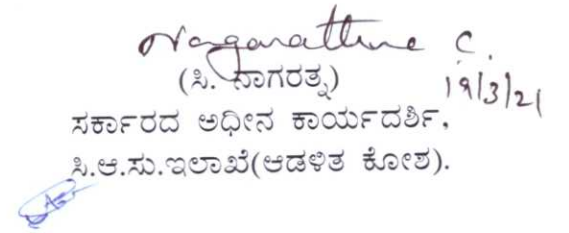 Nagarathna C.
(ಸಿ. ನಾಗರತ್ನ)
19/3/21
ಸರ್ಕಾರದ ಅಧೀನ ಕಾರ್ಯದರ್ಶಿ,
ಸಿ.ಆ.ಸು.ಇಲಾಖೆ(ಆಡಳಿತ ಕೋಶ).